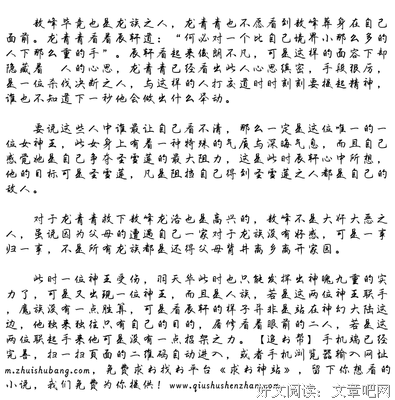 敖峰毕竟也是龙族之人，龙青青也不愿看到敖峰葬身在自己
面前。龙青青看着辰轩道：“何必对一个比自己境界小那么多的
人下那么重的手”。辰轩看起来俊朗不凡，可是这样的面容下却
隐藏着 人的心思，龙青青已经看出此人心思缜密，手段狠厉，
是一位杀伐决断之人，与这样的人打交道时时刻刻要提起精神，
谁也不知道下一秒他会做出什么举动。
要说这些人中谁最让自己看不清，那么一定是这位唯一的一
位女神王，此女身上有着一种特殊的气质与深海气息，而且自己
感觉她是自己争夺圣雪莲的最大阻力，这是此时辰轩心中所想，
他的目标可是圣雪莲，凡是阻挡自己得到圣雪莲之人都是自己的
敌人。
对于龙青青救下敖峰龙浩也是高兴的，敖峰不是大奸大恶之
人，虽说因为父母的遭遇自己一家对于龙族没有好感，可是一事
归一事，不是所有龙族都是逼得父母背井离乡离开家园。
此时一位神王受伤，羽天华此时也只能发挥出神魄九重的实
力了，可是又出现一位神王，而且是人族，若是这两位神王联手，
魔族没有一点胜算，可是看辰轩的样子并非是站在神幻大陆这
边，他独来独往只有自己的目的，唇修看着眼前的二人，若是这
两位联起手来他可是没有一点招架之力。【追书帮】手机端已经
完善，扫一扫页面的二维码自动进入，或者手机浏览器输入网址
m.zhuishubang.com，免费求书找书平台《求书神站》，留下你想看的
小说，我们免费为你提供！www.qiushushenzhan.com
好文阅读：文章吧网